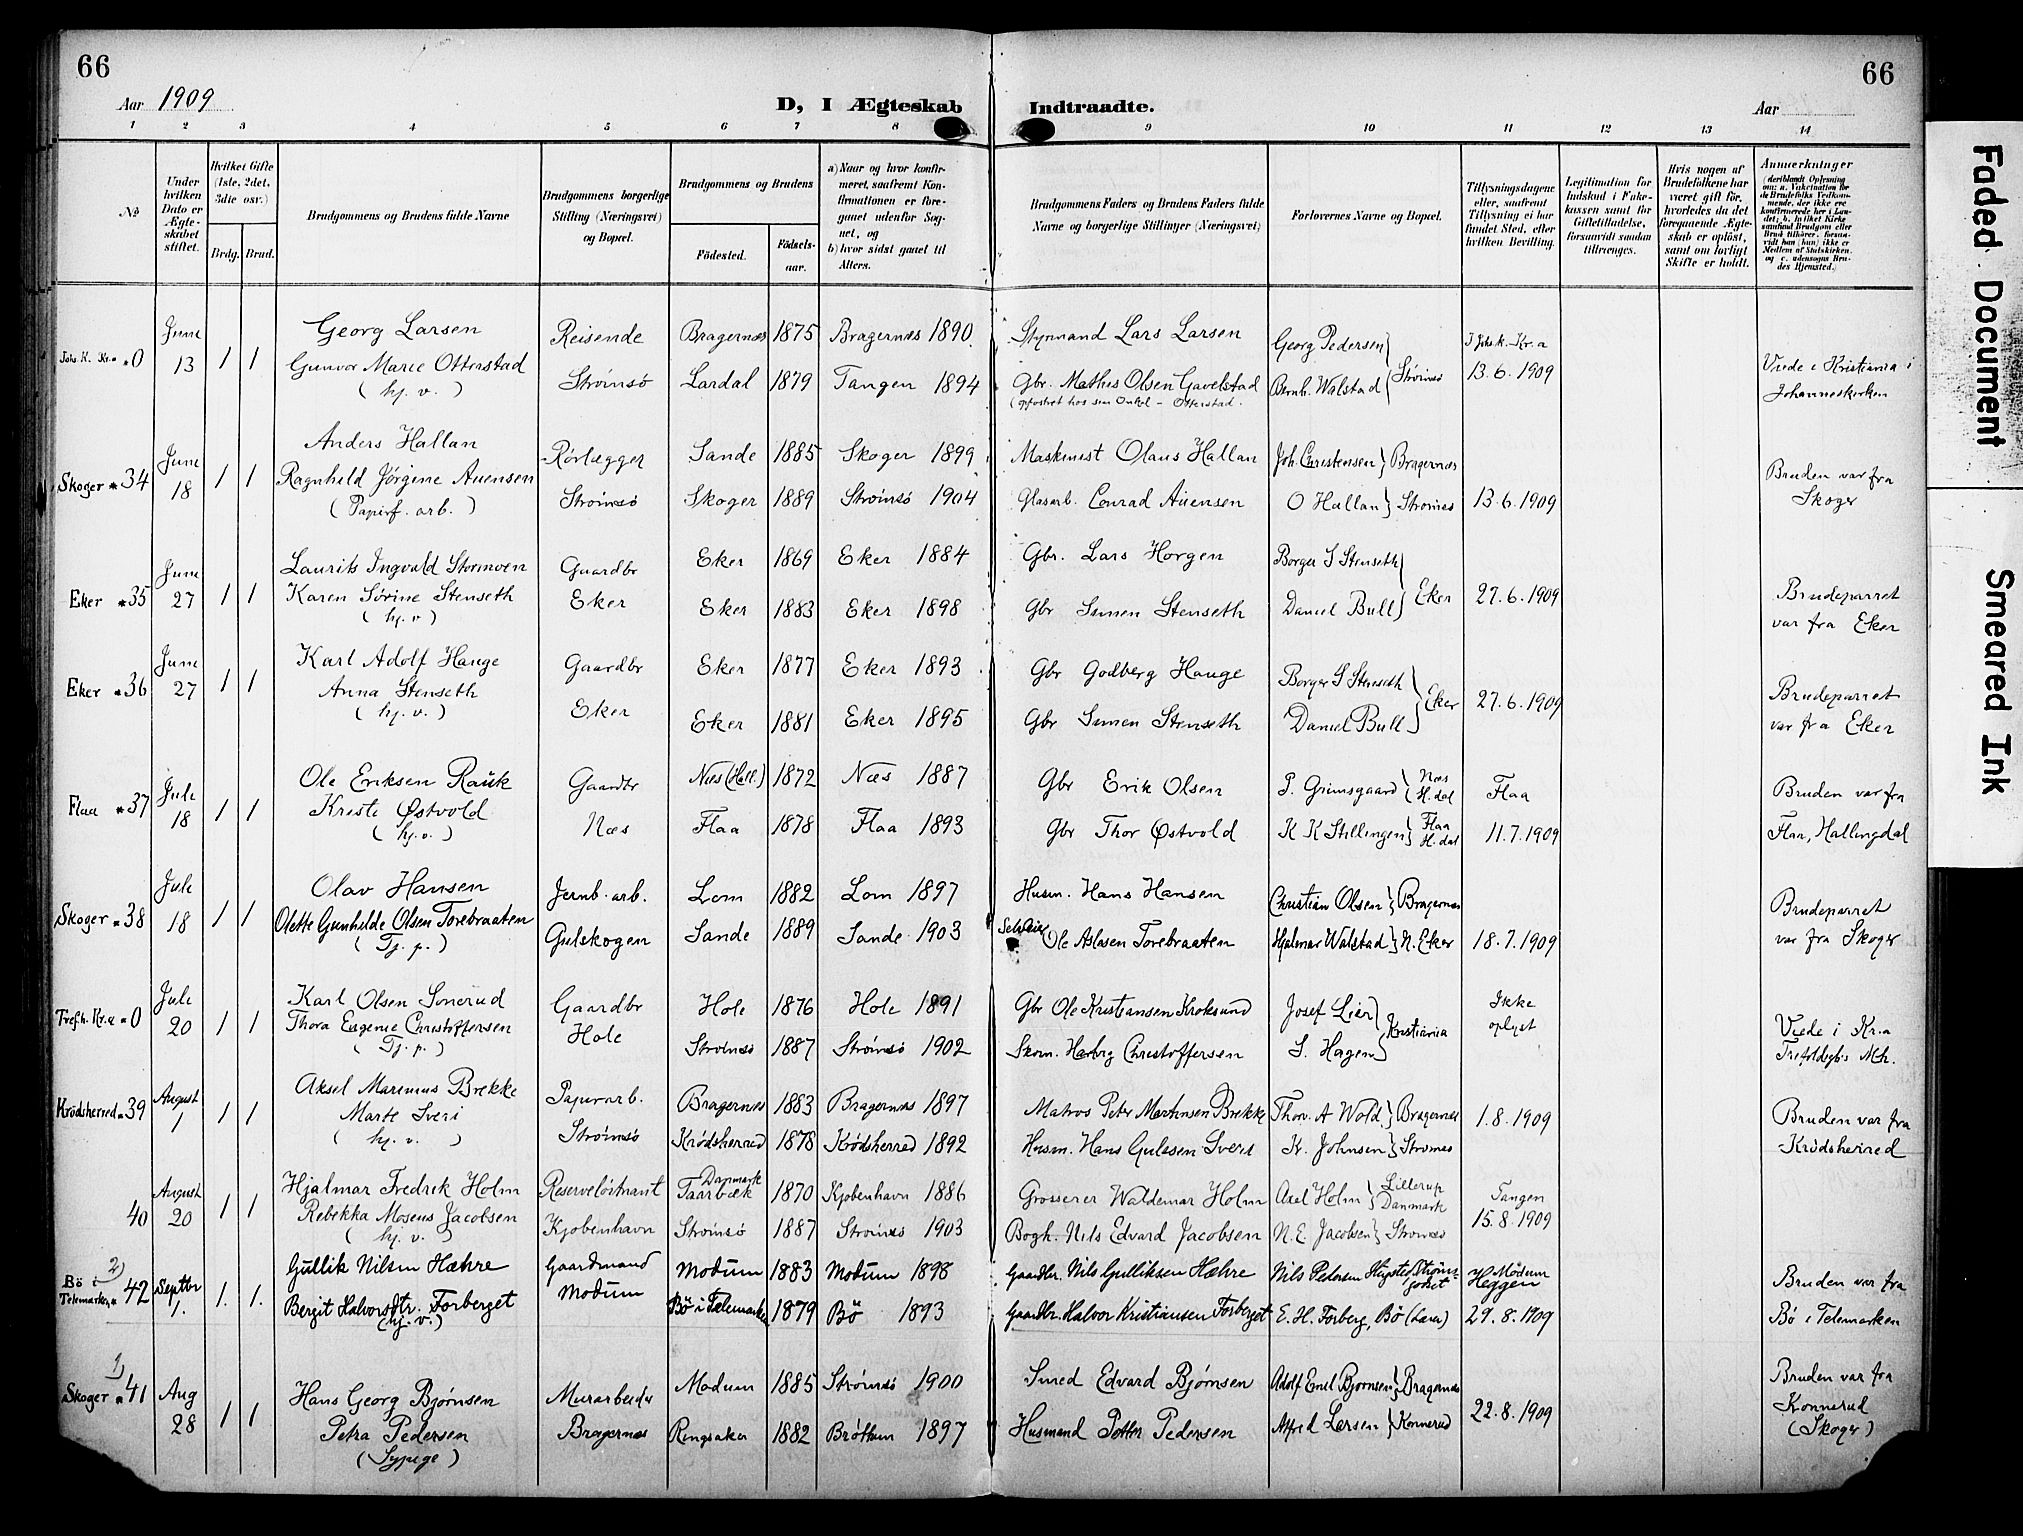 66
66
Aar 1909
D, I Ægteskab Indtraadte.
Aar
1 2 3 4 5 6 7 8 9 10 11 12 13 14
No
Under hvilken Dato er Ægteskabet stiftet.
Hvilket Gifte (1ste, 2det, 3die osv.)
Brdg. Brud.
Brudgommens og Brudens fulde Navne
Brudgommens borgerlige Stilling (Næringsvei) og Bopæl.
Brudgommens og Brudens
Födested.
Födselsaar.
a) Naar og hvor konfirmeret, saafremt Konfirmationen er foregaaet udenfor Sognet, og
b) hvor sidst gaaet til Alters.
Brudgommens Faders og Brudens Faders fulde Navne og borgerlige Stillinger (Næringsvei)
Forlovernes Navne og Bopæl.
Tillysningsdagene eller, saafremt Tillysning ei har fundet Sted, efter hvilken Bevilling.
Legitimation for Indskud i Enkekassen samt for Giftetilladelse, forsaavidt saadan tiltrænges.
Hvis nogen af Brudefolkene har været gift för, hvorledes da det foregaaende Ægteskab er oplöst, samt om lovligt Skifte er holdt.
Anmerkninger
(deriblandt Oplysning om: a. Vakcination for de Brudefolks Vedkommende, der ikke ere konfirmerede her i Landet; b. hvilket Kirkesamfund Brudgom eller Brud tilhörer, forsaavidt han (hun) ikke er Medlem af Statskirken, og c. udensogns Brudes Hjemsted.)
Johs. K. Kr.a 0 June 13 1 1 Georg Larsen Reisende Bragernæs 1875 Bragernæs 1890 Styrmand Lars Larsen Georg Pedersen I Johs. k. Kr.a
Gunvor Marie Otterstad Strømsø Lardal 1879 Tangen 1894 Gbr. Mathis Olsen Gavelstad Bernh. Walstad Strømsø 13.6.1909 Viede i Kristiania i Johanneskirken
(hj. v.) (opfostret hos sin Onkel - Otterstad.
Skoger 34 June 18 1 1 Anders Hallan Rørlægger Sande 1885 Skoger 1899 Maskinist Olaus Hallan Joh. Christensen Bragernæs
Ragnhild Jørgine Auensen Strømsø Skoger 1889 Strømsø 1904 Glasarb. Conrad Auensen O Hallan Strømsø 13.6.1909 Bruden var fra Skoger
(Papirf. arb.)
Eker 35 June 27 1 1 Laurits Ingvald Stormoen Gaardbr Eker 1869 Eker 1884 Gbr. Lars Horgen Borger S Stenseth
Karen Sørine Stenseth Eker Eker 1883 Eker 1898 Gbr Simen Stenseth Daniel Bull Eker 27.6.1909 Brudeparret var fra Eker
(hj. v)
Eker 36 June 27 1 1 Karl Adolf Hauge Gaardbr Eker 1877 Eker 1893 Gbr Godberg Hauge Borger S Stenseth
Anna Stenseth Eker Eker 1881 Eker 1895 Gbr Simen Stenseth Daniel Bull Eker 27.6.1909 Brudeparret var fra Eker
(hj. v.)
Flaa 37 Juli 18 1 1 Ole Eriksen Rauk Gaardbr Næs (Hall.) 1872 Næs 1887 Gbr Erik Olsen P. Grimsgaard Næs H.dal Flaa
Kristi Østvold Næs Flaa 1878 Flaa 1893 Gbr Thor Østvold K K Stillingen Flaa H.dal 11.7.1909 Bruden var fra Flaa, Hallingdal
(hj. v.)
Skoger 38 Juli 18 1 1 Olav Hansen Jernb. arb. Lom 1882 Lom 1897 Husm. Hans Hansen Christian Olsen Bragernæs
Olette Gunhilde Olsen Torebraaten Gulskogen Sande 1889 Sande 1903 Selveier Ole Aslasen Torebraaten Hjalmar Walstad N. Eker 18.7.1909 Brudeparret var fra Skoger
(Tj. p.)
Tref.h. Kr.a 0 Juli 20 1 1 Karl Olsen Sonerud Gaardbr Hole 1876 Hole 1891 Gbr Ole Kristiansen Kroksund Josef Lier Ikke oplyst
Thora Eugenie Christoffersen Hole Strømsø 1887 Strømsø 1902 Skom. Christoffersen S. Hagen Kristiania Viede i Kr.a Trefoldigh. Mh.
(Tj. p.)
Krødsherred 39 August 1 1 1 Aksel Marinius Brekke Papirarb. Bragernæs 1883 Bragernæs 1897 Matros Peter Martinsen Brekke Thorv. A Wold Bragernæs 1.8.1909
Marte Sveri Strømsø Krødsherred 1878 Krødsherred 1892 Husm. Hans Gulssen Sveri K. Johnsen Strømsø Bruden var fra Krødsherred
(hj. v.)
40 August 20 1 1 Hjalmar Fredrik Holm Reserveløitnant Taarbæk Danmark 1870 Kjøbenhavn 1886 Grosserer Waldemar Holm Axel Holm Lillerup Danmark Tangen
Rebekka Moseus Jacobsen Kjøbenhavn Strømsø 1887 Strømsø 1903 Bogh. Nils Edvard Jacobsen N. E. Jacobsen Strømsø 15.8.1909
(hj. v.)
2) Bö i Telemarken 42 Septbr 1. 1. 1. Gullik Nilsen Hæhre Gaardmand Modum 1883 Modum 1898 Gaardbr. Nils Gulliksen Hæhre Nils Pedersen Strømsgodset Modum Heggen
Bergit Halvorsdtr. Forberget Modum Bö i Telemarken 1879 Bö 1893 Gaardbr. Halvor Kristiansen Forberget E. H. Forberg, Bö (Lærer) 29.8.1909 Bruden var fra Bö i Telemarken
(hj. v.)
1) Skoger 41 Aug 28 1 1 Hans Georg Bjørnsen Murarbeider Modum 1885 Strømsø 1900 Smed Edvard Bjørnsen Adolf Emil Bjørnsen Bragernæs
Petra Pedersen Bragernæs Ringsaker 1882 Brøttum 1897 Husmand Petter Pedersen Alfred Larsen Konnerud 22.8.1909 Bruden var fra Konnerud (Skoger)
(Sypige)
Faded Document
Smeared Ink